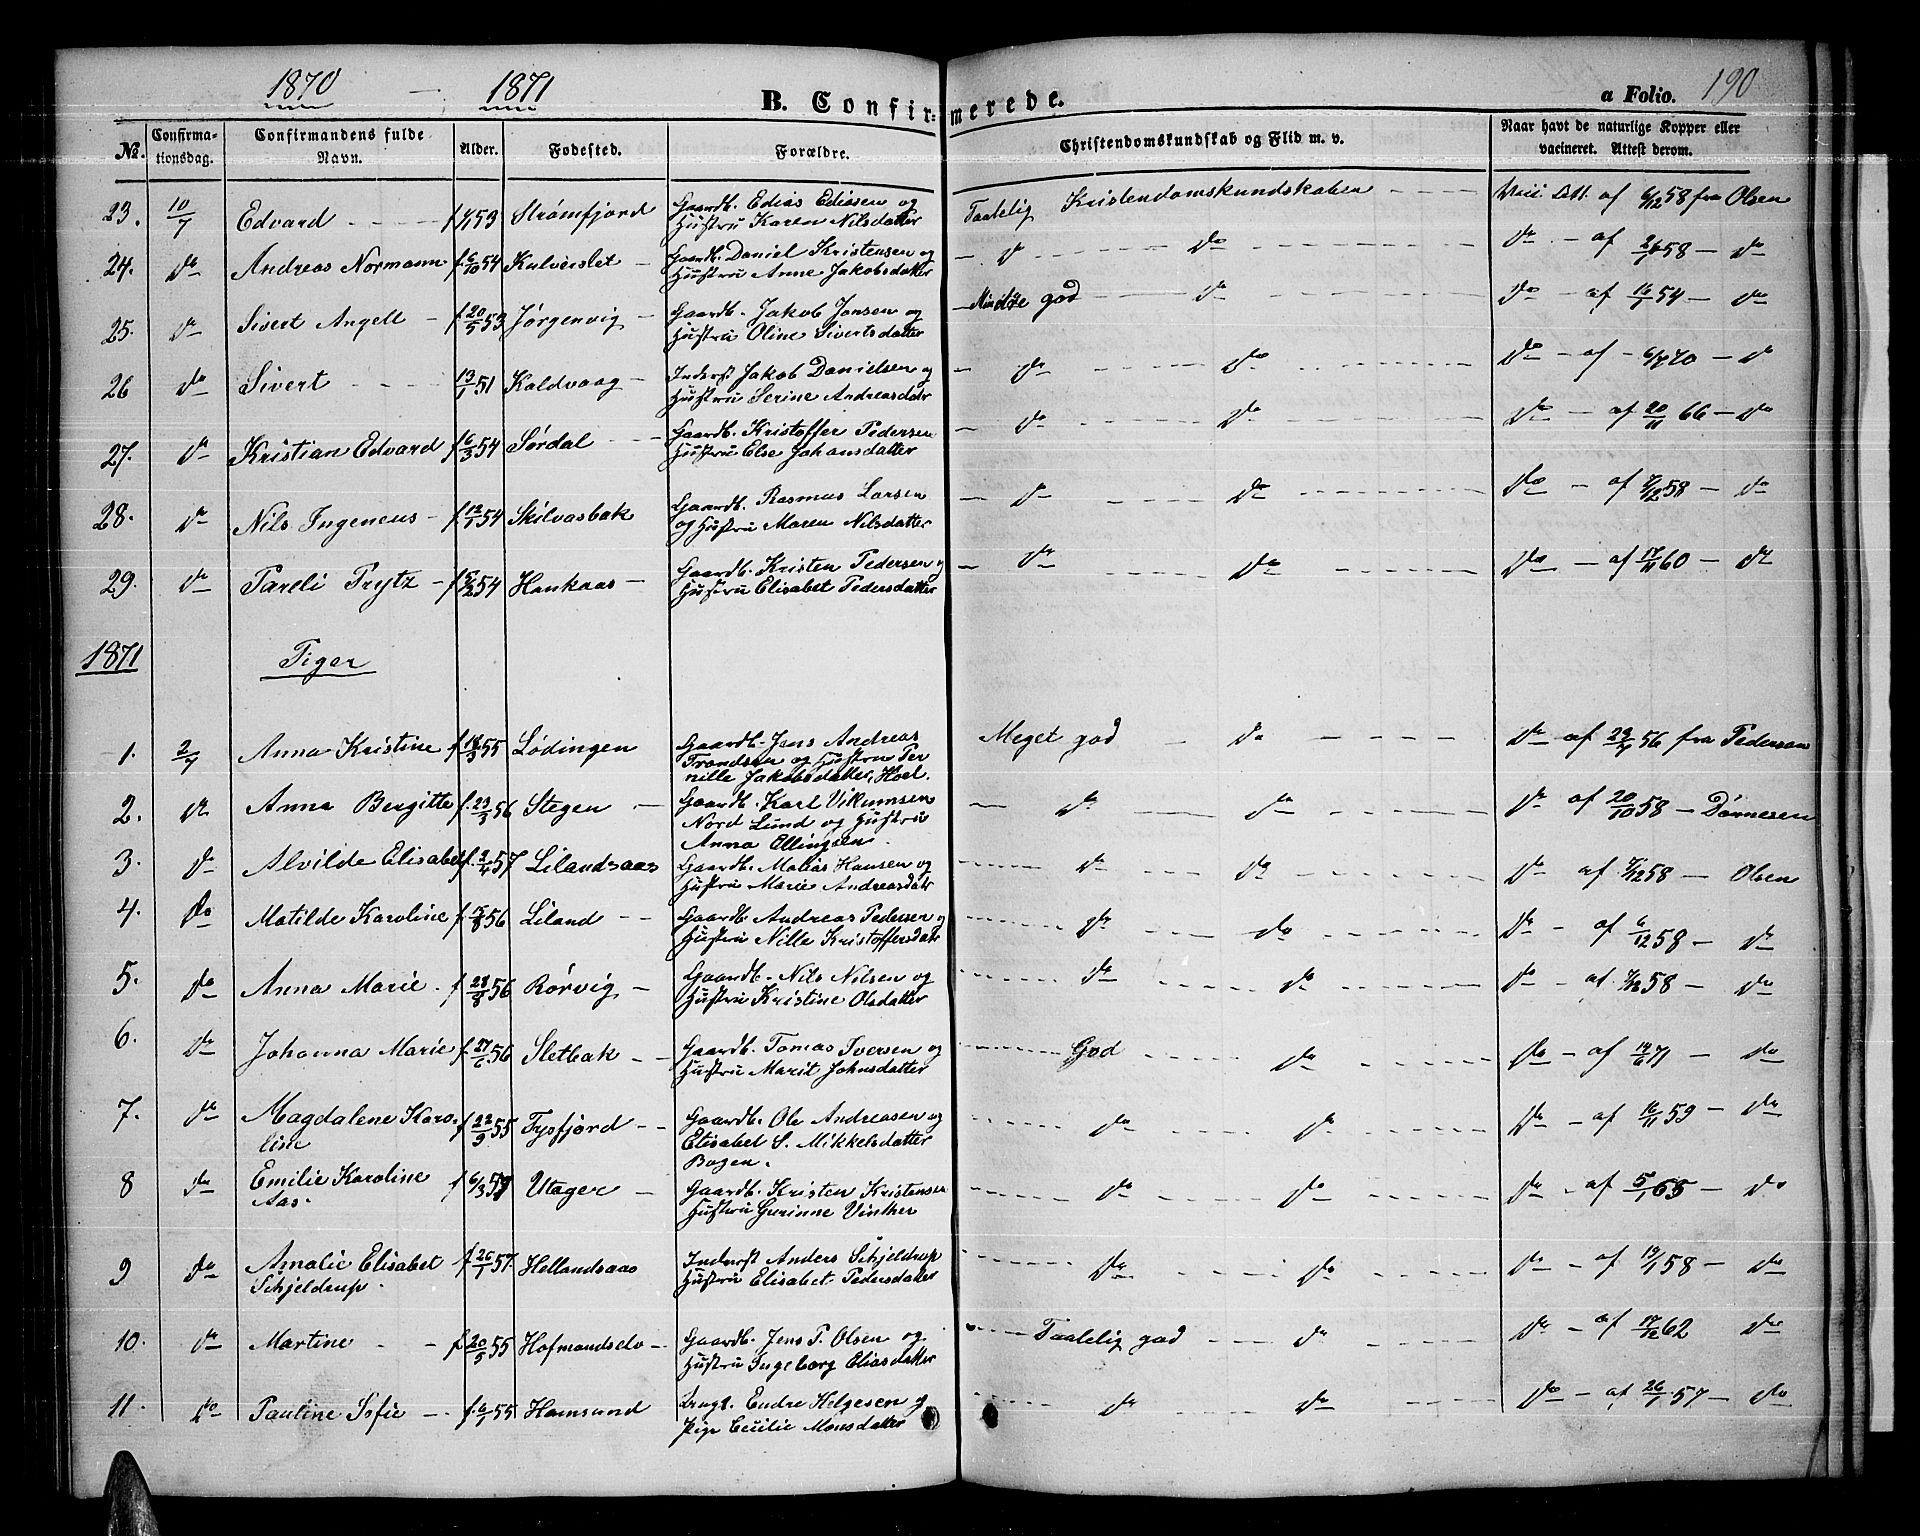 1870 - 1871
B. Confirmerede.
a Folio. 190
No. Confirmationsdag. Confirmandens fulde Navn. Alder. Fødested. Forældre. Christendomskundskab og Flid m. v. Naar havt de naturlige Kopper eller vacineret. Attest derom.
23. 10/7 Edvard 53 Strømfjord Gaardb. Edias Ediasen og Hustru Karen Nilsdatter Taalelig Kristendomskundskaben Att. af 6/12 58 fra Olsen
24. do Andreas Normann f. 6/10 54 Kulverslet Gaardb. Daniel Kristensen og Hustru Anne Jakobsdatter do do do af 58 do
25. do Sivert Angell f. 20/5 53 Jørgenvig Gaardb. Jakob Jonsen og Hustru Oline Sivertsdatter Mindre god do do af 16/7 54 do
26 do Sivert 13/1 51 Kaldvaag Inderst Jakob Danielsen og Hustru Serine Andreasdatr do do do af 6/7 70 do
27. do Kristian Edvard f. 6/3 54 Sørdal Gaardb. Kristoffer Pedersen Hustru Else Johansdatter do do do af 20/11 66 do
28. do Nils Ingeneus f. 12/1 54 Skilvasbak Gaardb. Rasmus Larsen og Hustru Maren Nilsdatter do do do af 7/12 58 do
29. do Pareli Prytz f. 5/2 54 Hankaas Gaardb. Kristen Pedersen og Hustru Elisabet Pedersdatter do do do af 17/11 60 do
1871 Piger
1. 2/7 Anna Kristine f. 18/3 55 Lødingen Gaardb. Jens Andreas Trondsen og Hustru Pernille Jakobsdatter, Hoel. Meget god do do af 29/7 56 fra Pedersen
2. do Anna Bergitte f. 23/3 56 Stegen Gaardb. Karl Vikumsen Nord Lund og Hustru Anna Ellingsen. do do do af 20/10 58 Dønnesen
3. do Alvilde Elisabet f. 2/4 57 Lilandsaas Gaardb. Mobias Hansen og Hustru Marie Andreasdatr do do do af 7/12 58 Olsen
4. do Matilde Karoline f. 56 Liland Gaardb. Andreas Pedersen og Hustru Nille Kristoffersdatr do do do af 6/12 58 do
5. do Anna Marie f. 28/8 56 Rørvig Gaardb. Nils Nilsen og Hustru Kristine Olsdatter do do do af 7/12 58 do
6. do Johanna Marie f. 27/6 56 Sletbak Gaardb. Tomas Iversen og Hustru Marit Johnsdatter God do do af 14/6 71 do
7. do Magdalene Karoline f. 22/9 55 Tysfjord Gaardb. Ole Andreasen og Elisabet S. Mikkelsdatter Bogen. do do do af 16/11 59 do
8 do Emilie Karoline Aas. f. 6/3 57 Utager Gaardb. Kristen Kristensen Hustru Gurinne Vinther do do do af 5/1 65 do
9 do Amalie Elisabet Schjeldrup. f. 26/1 57. Hellandsaas Inderst Anders Schjeldrup Hustru Elisabet Pedersdatter do do do af 19/1 58 do
10. do Martine f. 20/5 55 Hofmandselv Gaardb. Jens P. Olsen og Hustru Ingeborg Eliasdatter Taalelig god do do af 17/12 62 do
11. do Pauline Sofie f. 6/1 55 Hamsund Brugl. Endre Helgesen og Pige Cecilie Monsdatter do do do af 26/1 57 do